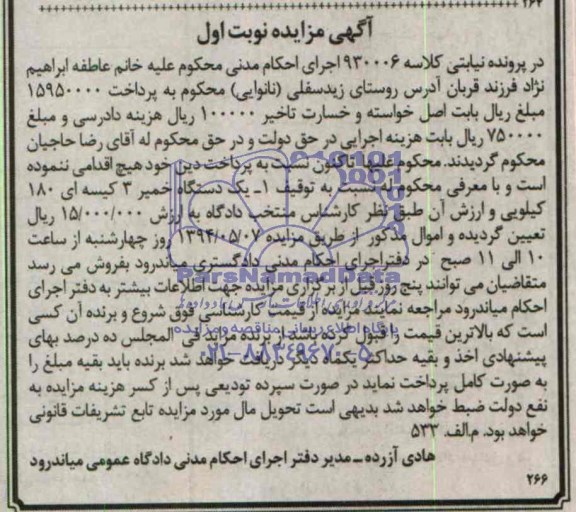 ۲۶۲
آگهی مزایده نوبت اول
در پرونده نیابتی کلاسه ۹۳۰۰۰۶ اجرای احکام مدنی محکوم علیه خانم عاطفه ابراهیم
نژاد فرزند قربان آدرس روستای زیدسفلی (نانوایی) محکوم به پرداخت ۱۵۹۵۰۰۰۰
مبلغ ریال بابت اصل خواسته و خسارت تاخیر ۱۰۰۰۰۰ ریال هزینه دادرسی و مبلغ
۷۵۰۰۰۰ ریال بابت هزینه اجرایی در حق دولت و در حق محکوم له آقای رضا حاجیان
محکوم گردیدند. محکوم علیه تاکنون نسبت به پرداخت دین خود هیچ اقدامی ننموده
است و با معرفی محکوم له نسبت به توقیف ۱ـ یک دستگاه خمیر ۳ کیسه ای ۱۸۰
کیلویی و ارزش آن طبق نظر کارشناس منتخب دادگاه به ارزش ۱۵/۰۰۰/۰۰۰ ریال
تعیین گردیده و اموال مذکور از طریق مزایده ۱۳۹۴/۰۵/۰۷ روز چهارشنبه از ساعت
۱۰ الی ۱۱ صبح در دفتراجرای احکام مدنی دادگستری میاندرود بفروش می رسد
ParsNamadData
متقاضیان می توانند پنج روز قبل از برگزاری مزایده جهت اطلاعات بیشتر به دفتر اجرای
احکام میاندرود مراجعه نمایند مزایده از قیمت کارشناسی فوق شروع و برنده آن کسی
است که بالاترین قیمت را قبول کرده باشد از برنده مزایده فی المجلس ده درصد بهای
پایگاه اطلاع رسانی مناقصه و مزایده
پیشنهادی اخذ و بقیه حداکثر یکماه دیگر دریافت خواهد شد برنده باید بقیه مبلغ را
۰۲۱-۸۸۳۴۹۶۷۰-۵
به صورت کامل پرداخت نماید در صورت سپرده تودیعی پس از کسر هزینه مزایده به
نفع دولت ضبط خواهد شد بدیهی است تحویل مال مورد مزایده تابع تشریفات قانونی
خواهد بود. م.الف ۵۳۳
هادی آزرده ـ مدیر دفتر اجرای احکام مدنی دادگاه عمومی میاندرود
۲۶۶